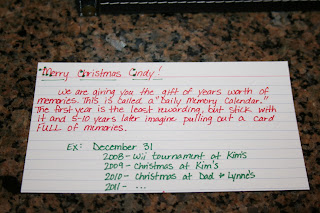 Merry Christmas Cindy!
We are giving you the gift of years worth of
memories. This is called a "Daily Memory Calendar."
The first year is the least rewarding, but stick with
it and 5-10 years later imagine pulling out a card
FULL of memories.
Ex: December 31
2008 - Wii tournament at Kim's
2009 - Christmas at Kim's
2010 - Christmas at Dad & Lynne's
2011 - ...